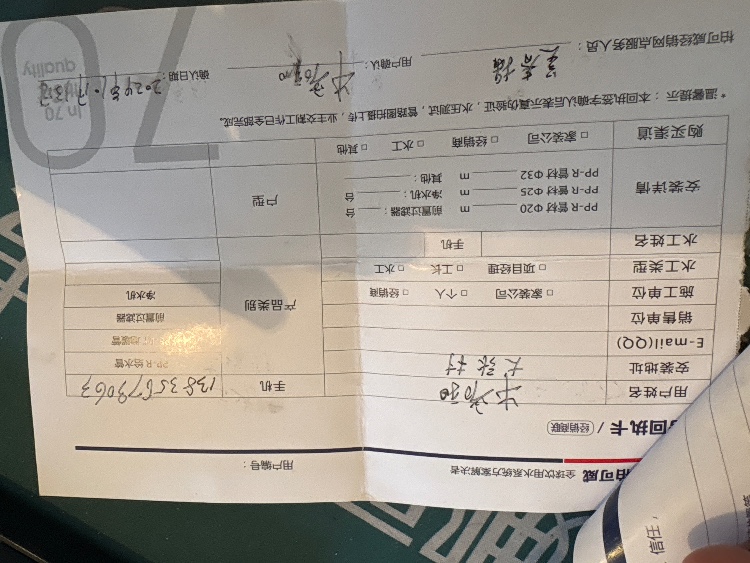 柏可威 全球饮用水系统方案解决者
用户编号：
回执卡 / 经销商联
用户姓名 手机 13835679063
安装地址 大张村 PP-R 给水管
E-mail(QQ)
销售单位 前置过滤器
施工单位 □ 家装公司 □ 个人 □ 经销商 产品类别 净水机
水工类型 □ 项目经理 □ 工长 □ 水工
水工姓名 手机
安装详情 PP-R 管材 Φ20 m 前置过滤器： 台 户型
PP-R 管材 Φ25 m 净水机： 台
PP-R 管材 Φ32 m 其他：
购买渠道 □ 家装公司 □ 经销商 □ 水工 □ 其他
* 温馨提示：本回执签字确认后表示真伪验证，水压测试，管路图拍摄上传，业主交割工作已全部完成。
柏可威经销网点服务人员： 用户确认： 确认日期：
in 70
quality
70
信任，